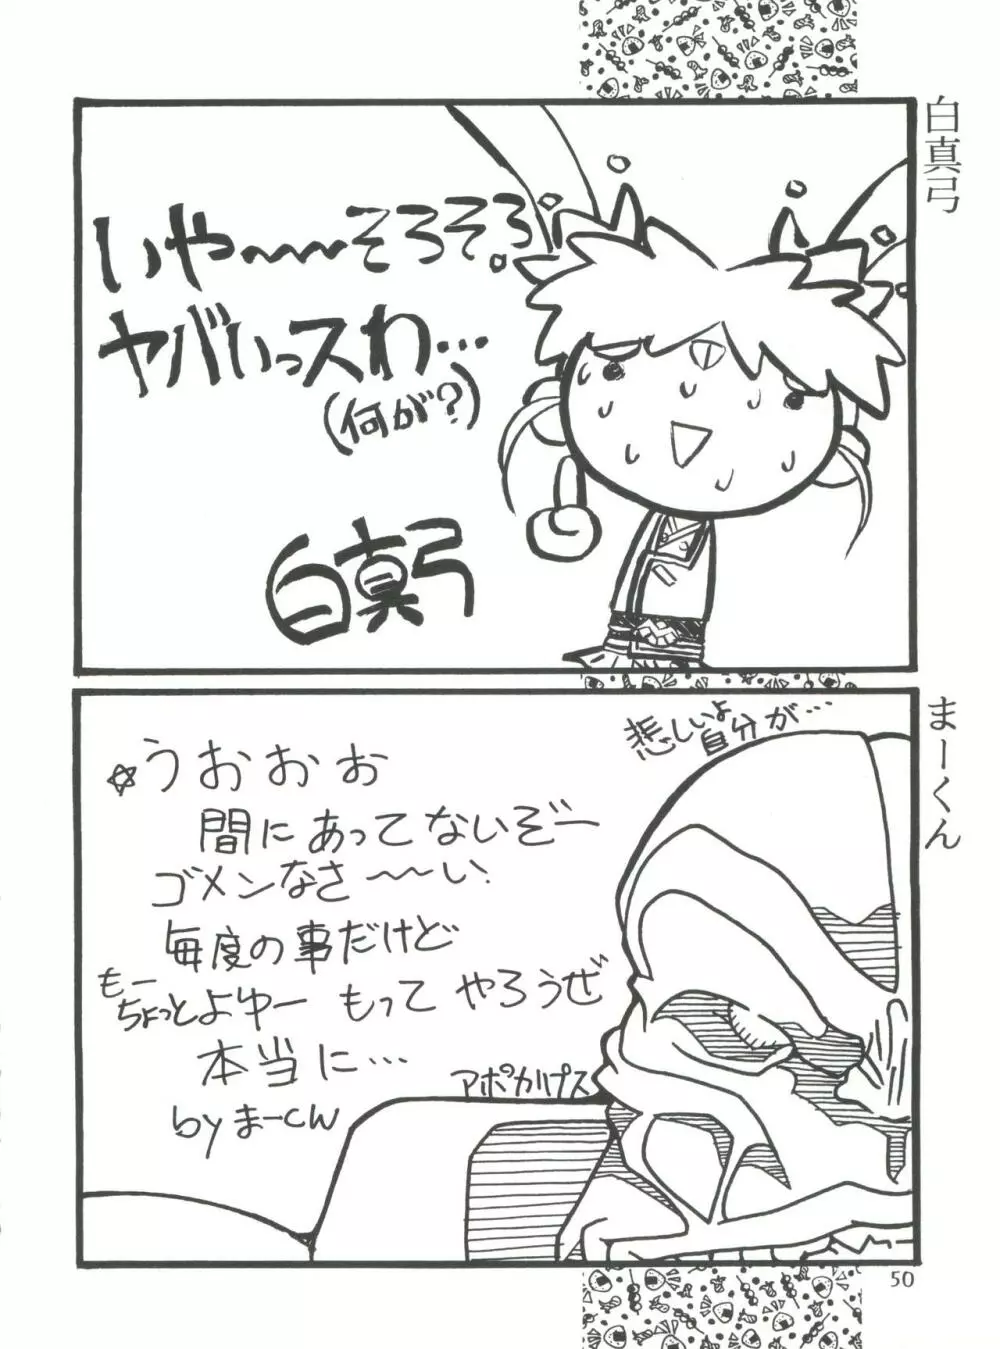 白真弓
いや〜〜そろそろ
ヤバいっスわ…
(何が?)
白真弓
まーくん
悲しいよ
自分が…
☆うおぉぉ
間にあってないぞー
ゴメンなさ〜〜い.
毎度の事だけど
もー
ちょっとよゆー もって やろうぜ
本当に…
by まーくん
アポカリプス
50